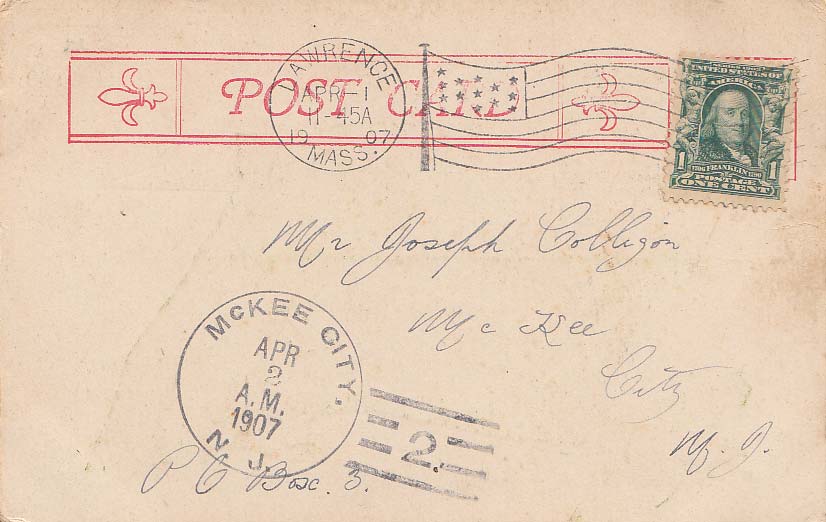 POST CARD
LAWRENCE
APR-1
11-45A
1907
MASS.
UNITED STATES OF
AMERICA
1 1706 FRANKLIN 1790 1
POSTAGE
ONE CENT
Mr Joseph Colligon
Mc Kee
City
N. J.
P O Box. 3.
McKEE CITY.
APR
2
A.M.
1907
N. J.
2.